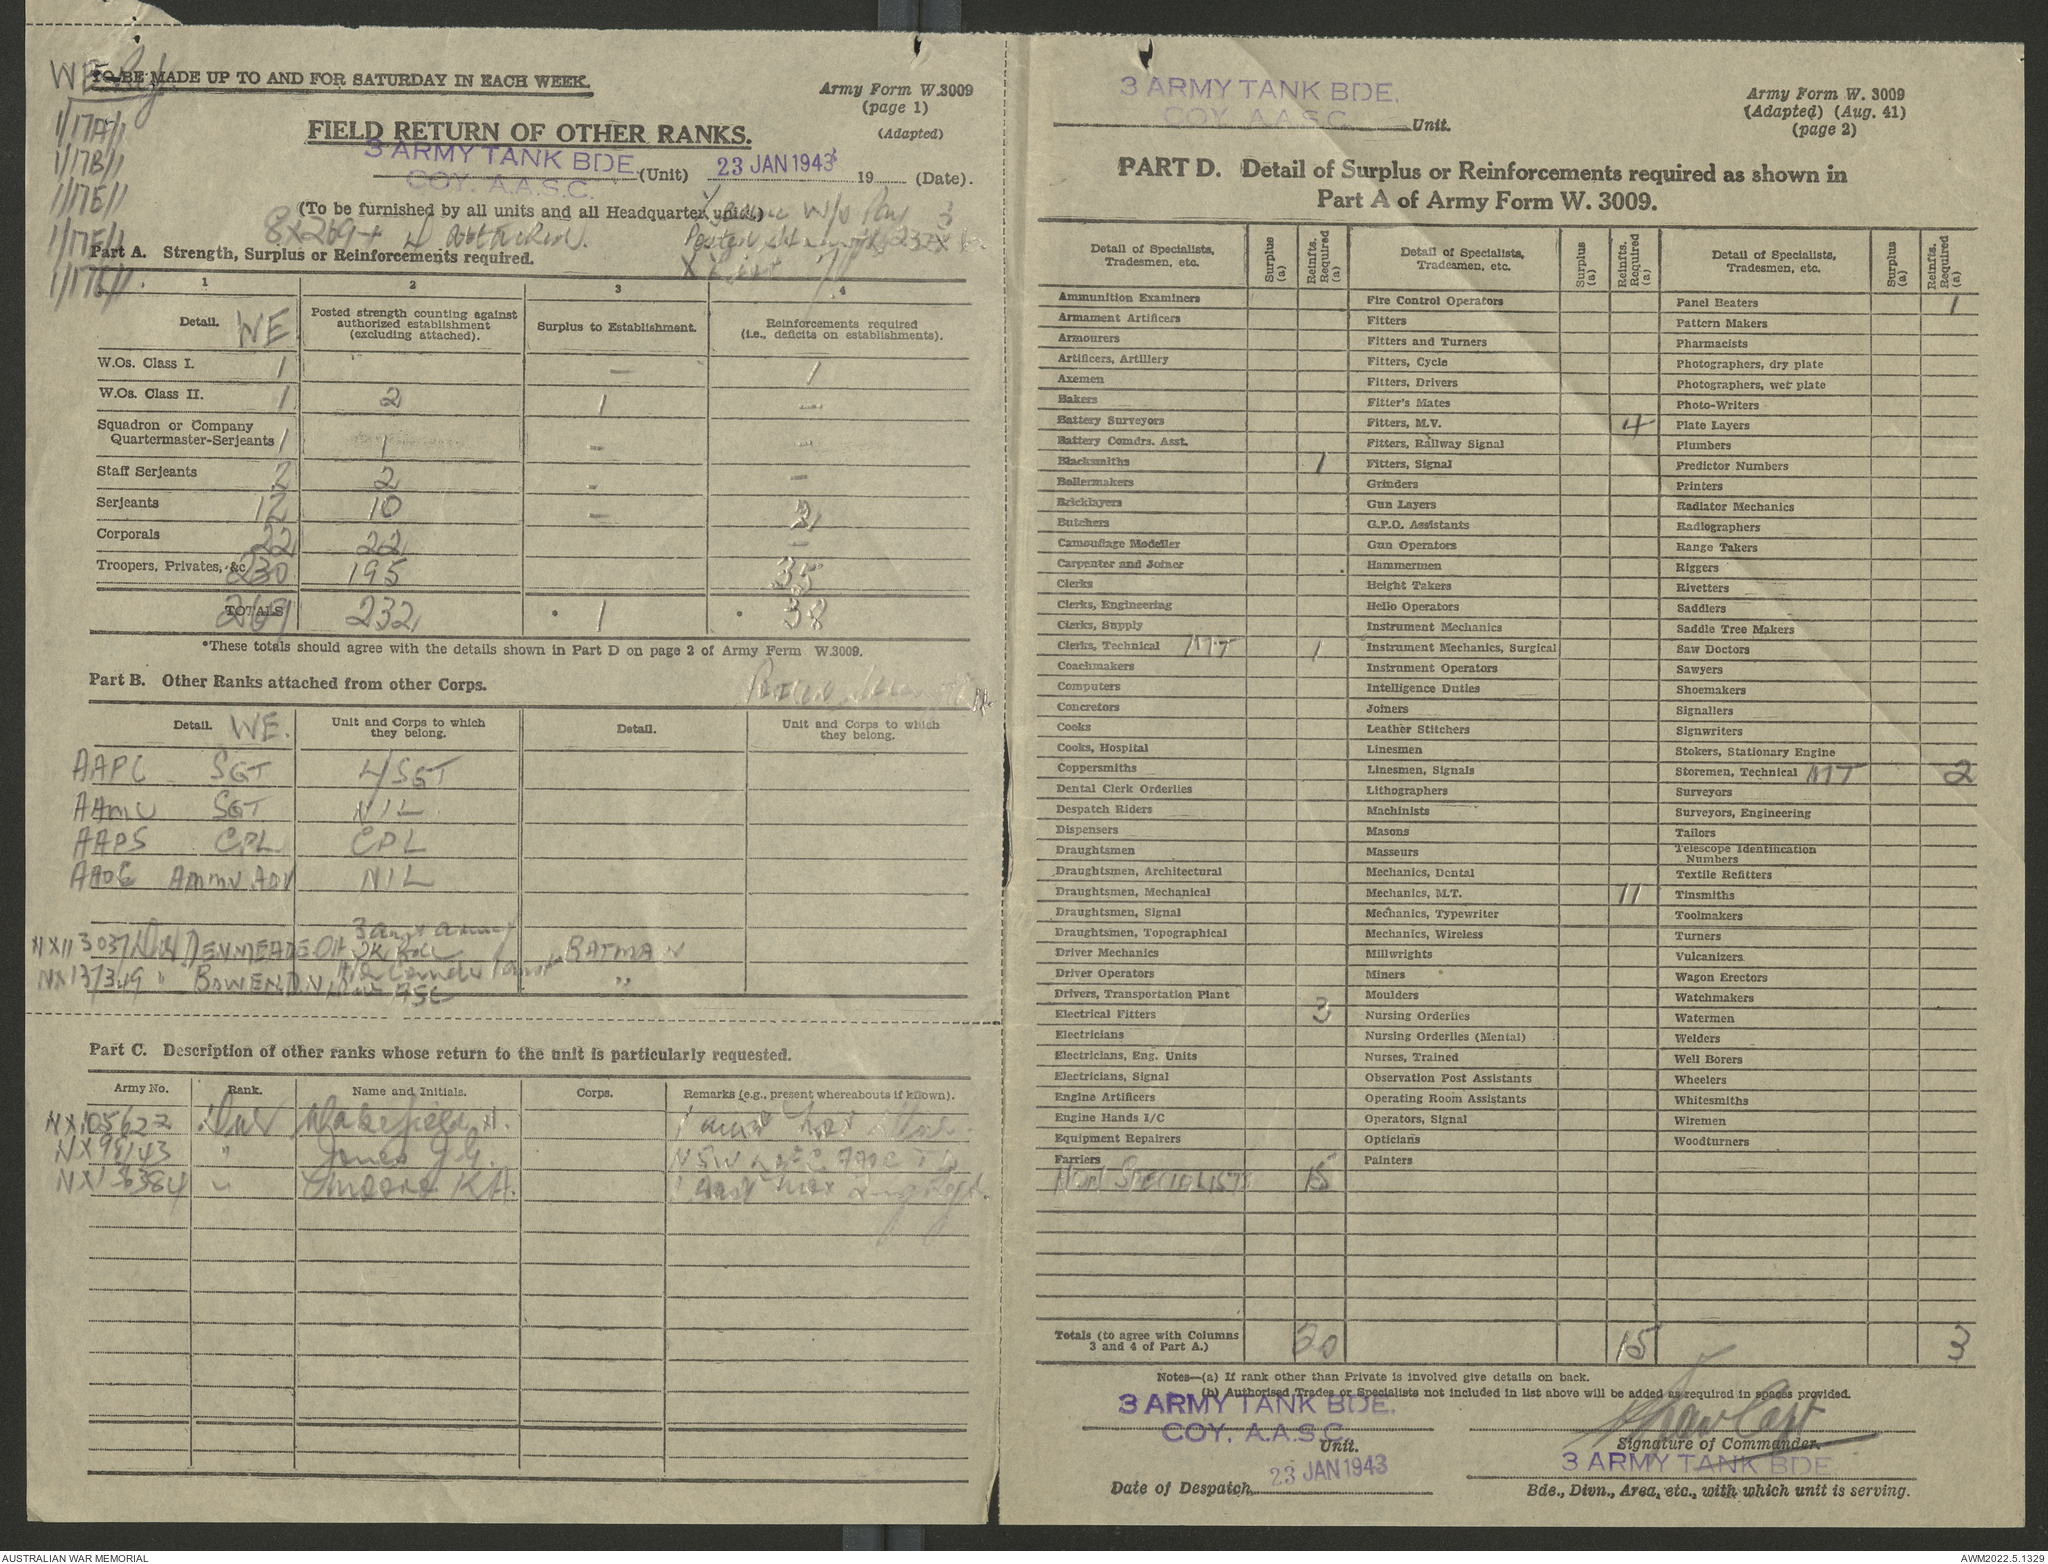 WE
TO BE MADE UP TO AND FOR SATURDAY IN EACH WEEK.
Army Form W.3009
(page 1)
(Adapted)
1/17A/1
1/17B/1
1/17E/1
1/17F/1
FIELD RETURN OF OTHER RANKS.
3 ARMY TANK BDE. (Unit) 23 JAN 1943 19 (Date).
COY. A.A.S.C.
(To be furnished by all units and all Headquarter units.)
8 X 269 + 4 attached.
Part A. Strength, Surplus or Reinforcements required.
1 2 3 4
Detail. WE Posted strength counting against authorized establishment (excluding attached). Surplus to Establishment. Reinforcements required (i.e., deficits on establishments).
W.Os. Class I. 1 – 1
W.Os. Class II. 1 2 1 –
Squadron or Company Quartermaster-Serjeants 1 1 – –
Staff Serjeants 2 2 – –
Serjeants 12 10 – 2
Corporals 22 22 –
Troopers, Privates, &c 230 195 35
TOTALS 269 232 * 1 * 38
*These totals should agree with the details shown in Part D on page 2 of Army Form W.3009.
Part B. Other Ranks attached from other Corps.
Detail. WE. Unit and Corps to which they belong. Detail. Unit and Corps to which they belong.
AAPC SGT L/SGT
AAMC SGT NIL
AAPS CPL CPL
AAOC AMMN NIL
NX113037 Dvr DENMEADE BATMAN
NX137349 " BOWEN D.N. "
Part C. Description of other ranks whose return to the unit is particularly requested.
Army No. Rank. Name and Initials. Corps. Remarks (e.g., present whereabouts if known).
NX105622 Dvr Wakefield
NX98143 " Jones J.G.
NX136384 " K.A.
3 ARMY TANK BDE.
COY. A.A.S.C. Unit.
Army Form W. 3009
(Adapted) (Aug. 41)
(page 2)
PART D. Detail of Surplus or Reinforcements required as shown in
Part A of Army Form W. 3009.
Detail of Specialists, Tradesmen, etc. Surplus (a) Reinfts. Required (a)
Ammunition Examiners
Armament Artificers
Armourers
Artificers, Artillery
Axemen
Bakers
Battery Surveyors
Battery Comdrs. Asst.
Blacksmiths 1
Boilermakers
Bricklayers
Butchers
Camouflage Modeller
Carpenter and Joiner
Clerks
Clerks, Engineering
Clerks, Supply
Clerks, Technical MT 1
Coachmakers
Computers
Concretors
Cooks
Cooks, Hospital
Coppersmiths
Dental Clerk Orderlies
Despatch Riders
Dispensers
Draughtsmen
Draughtsmen, Architectural
Draughtsmen, Mechanical
Draughtsmen, Signal
Draughtsmen, Topographical
Driver Mechanics
Driver Operators
Drivers, Transportation Plant
Electrical Fitters 3
Electricians
Electricians, Eng. Units
Electricians, Signal
Engine Artificers
Engine Hands I/C
Equipment Repairers
Farriers
Non Specialists 15
Detail of Specialists, Tradesmen, etc. Surplus (a) Reinfts. Required (a)
Fire Control Operators
Fitters
Fitters and Turners
Fitters, Cycle
Fitters, Drivers
Fitter's Mates
Fitters, M.V. 4
Fitters, Railway Signal
Fitters, Signal
Grinders
Gun Layers
G.P.O. Assistants
Gun Operators
Hammermen
Height Takers
Hello Operators
Instrument Mechanics
Instrument Mechanics, Surgical
Instrument Operators
Intelligence Duties
Joiners
Leather Stitchers
Linesmen
Linesmen, Signals
Lithographers
Machinists
Masons
Masseurs
Mechanics, Dental
Mechanics, M.T. 11
Mechanics, Typewriter
Mechanics, Wireless
Millwrights
Miners
Moulders
Nursing Orderlies
Nursing Orderlies (Mental)
Nurses, Trained
Observation Post Assistants
Operating Room Assistants
Operators, Signal
Opticians
Painters
Detail of Specialists, Tradesmen, etc. Surplus (a) Reinfts. Required (a)
Panel Beaters 1
Pattern Makers
Pharmacists
Photographers, dry plate
Photographers, wet plate
Photo-Writers
Plate Layers
Plumbers
Predictor Numbers
Printers
Radiator Mechanics
Radiographers
Range Takers
Riggers
Rivetters
Saddlers
Saddle Tree Makers
Saw Doctors
Sawyers
Shoemakers
Signallers
Signwriters
Stokers, Stationary Engine
Storemen, Technical MT 2
Surveyors
Surveyors, Engineering
Tailors
Telescope Identification Numbers
Textile Refitters
Tinsmiths
Toolmakers
Turners
Vulcanizers
Wagon Erectors
Watchmakers
Watermen
Welders
Well Borers
Wheelers
Whitesmiths
Wiremen
Woodturners
Totals (to agree with Columns 3 and 4 of Part A.) 20 15 3
Notes—(a) If rank other than Private is involved give details on back.
(b) Authorised Trades or Specialists not included in list above will be added as required in spaces provided.
3 ARMY TANK BDE.
COY. A.A.S.C.
Unit.
Capt
Signature of Commander.
Date of Despatch 23 JAN 1943
3 ARMY TANK BDE.
Bde., Divn., Area, etc., with which unit is serving.
AUSTRALIAN WAR MEMORIAL
AWM2022.5.1329